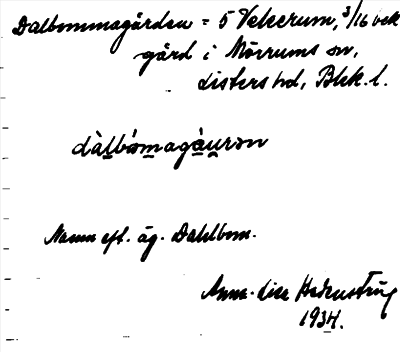 Dalbommagården = 5 Vekerum, 3/16 mtl
gård i Mörrums sn,
Listers hd, Blek. l.
dàlbómagàurən
Namn eft. äg. Dahlbom.
Anna-Lisa
1934.